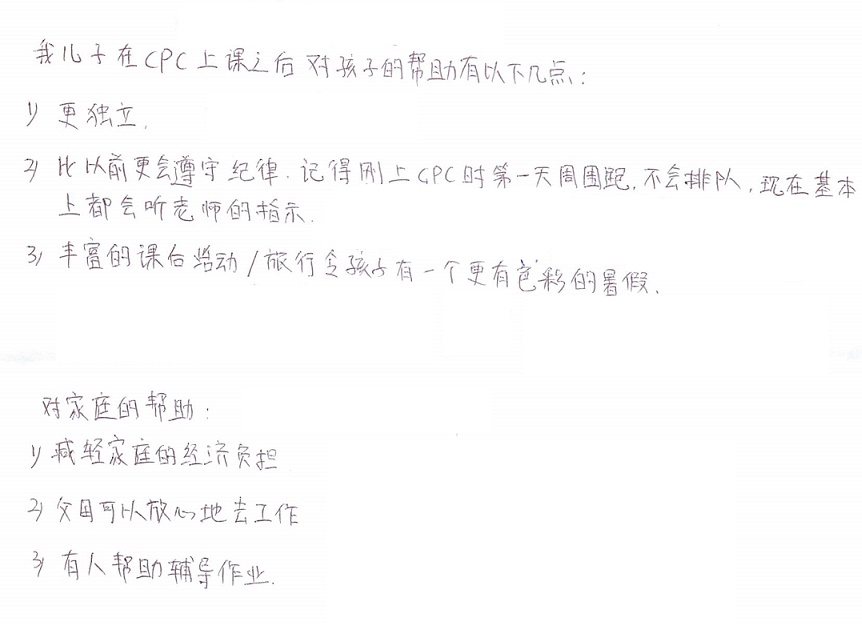 我儿子在CPC上课之后对孩子的帮助有以下几点:
1) 更独立.
2) 比以前更会遵守纪律. 记得刚上CPC时第一天周围跑, 不会排队, 现在基本
上都会听老师的指示.
3) 丰富的课后活动/旅行令孩子有一个更有色彩的暑假.
对家庭的帮助:
1) 减轻家庭的经济负担
2) 父母可以放心地去工作
3) 有人帮助辅导作业.